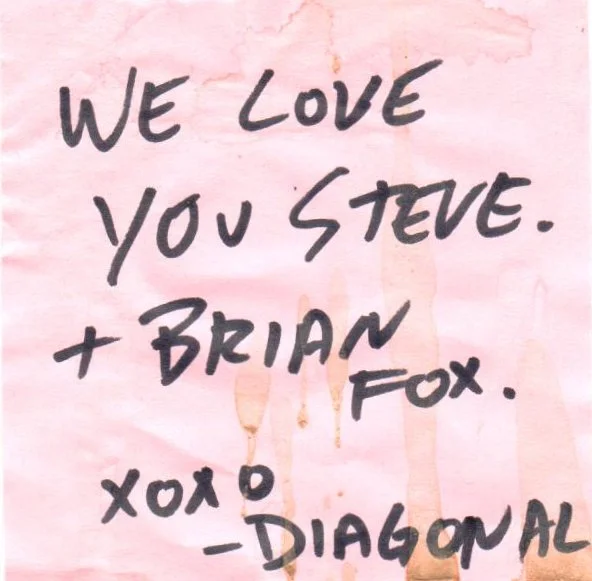 WE LOVE
YOU STEVE.
+ BRIAN
FOX.
XOXO
-DIAGONAL